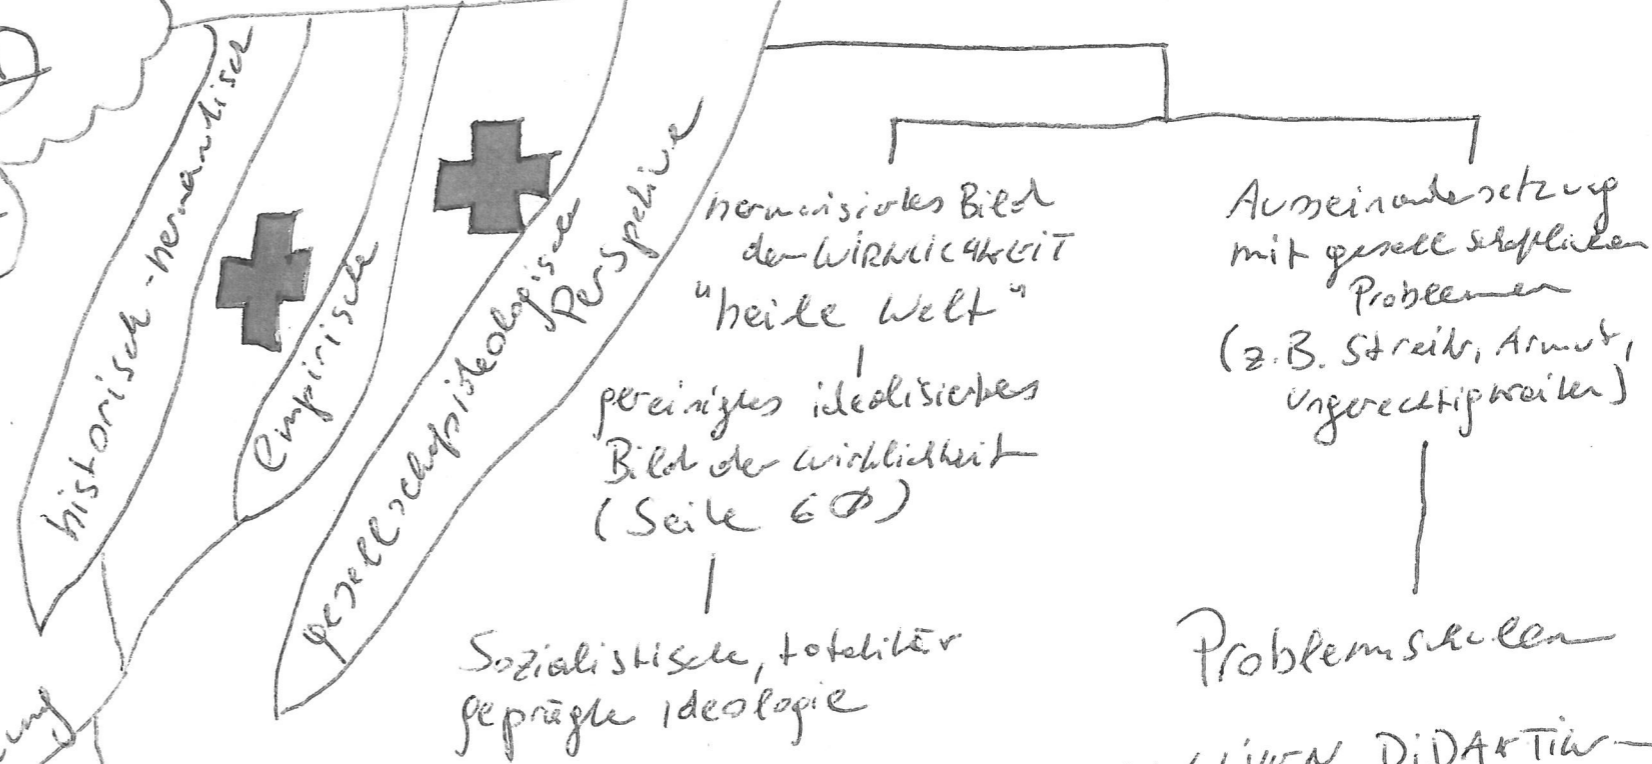 historisch-hermantisch
empirische
gesellschafsideologische
Perspektive
harmonisiertes Bild
der WiRKLICHKEIT
"heile Welt"
gereinigtes idealisiertes
Bild der Wirklichkeit
(Seite 60)
Sozialistische, totalitär
geprägte Ideologie
Auseinandersetzung
mit gesellschaftlichen
Problemen
(z.B. Streik, Armut,
Ungerechtigkeiten)
DiDAKTiK